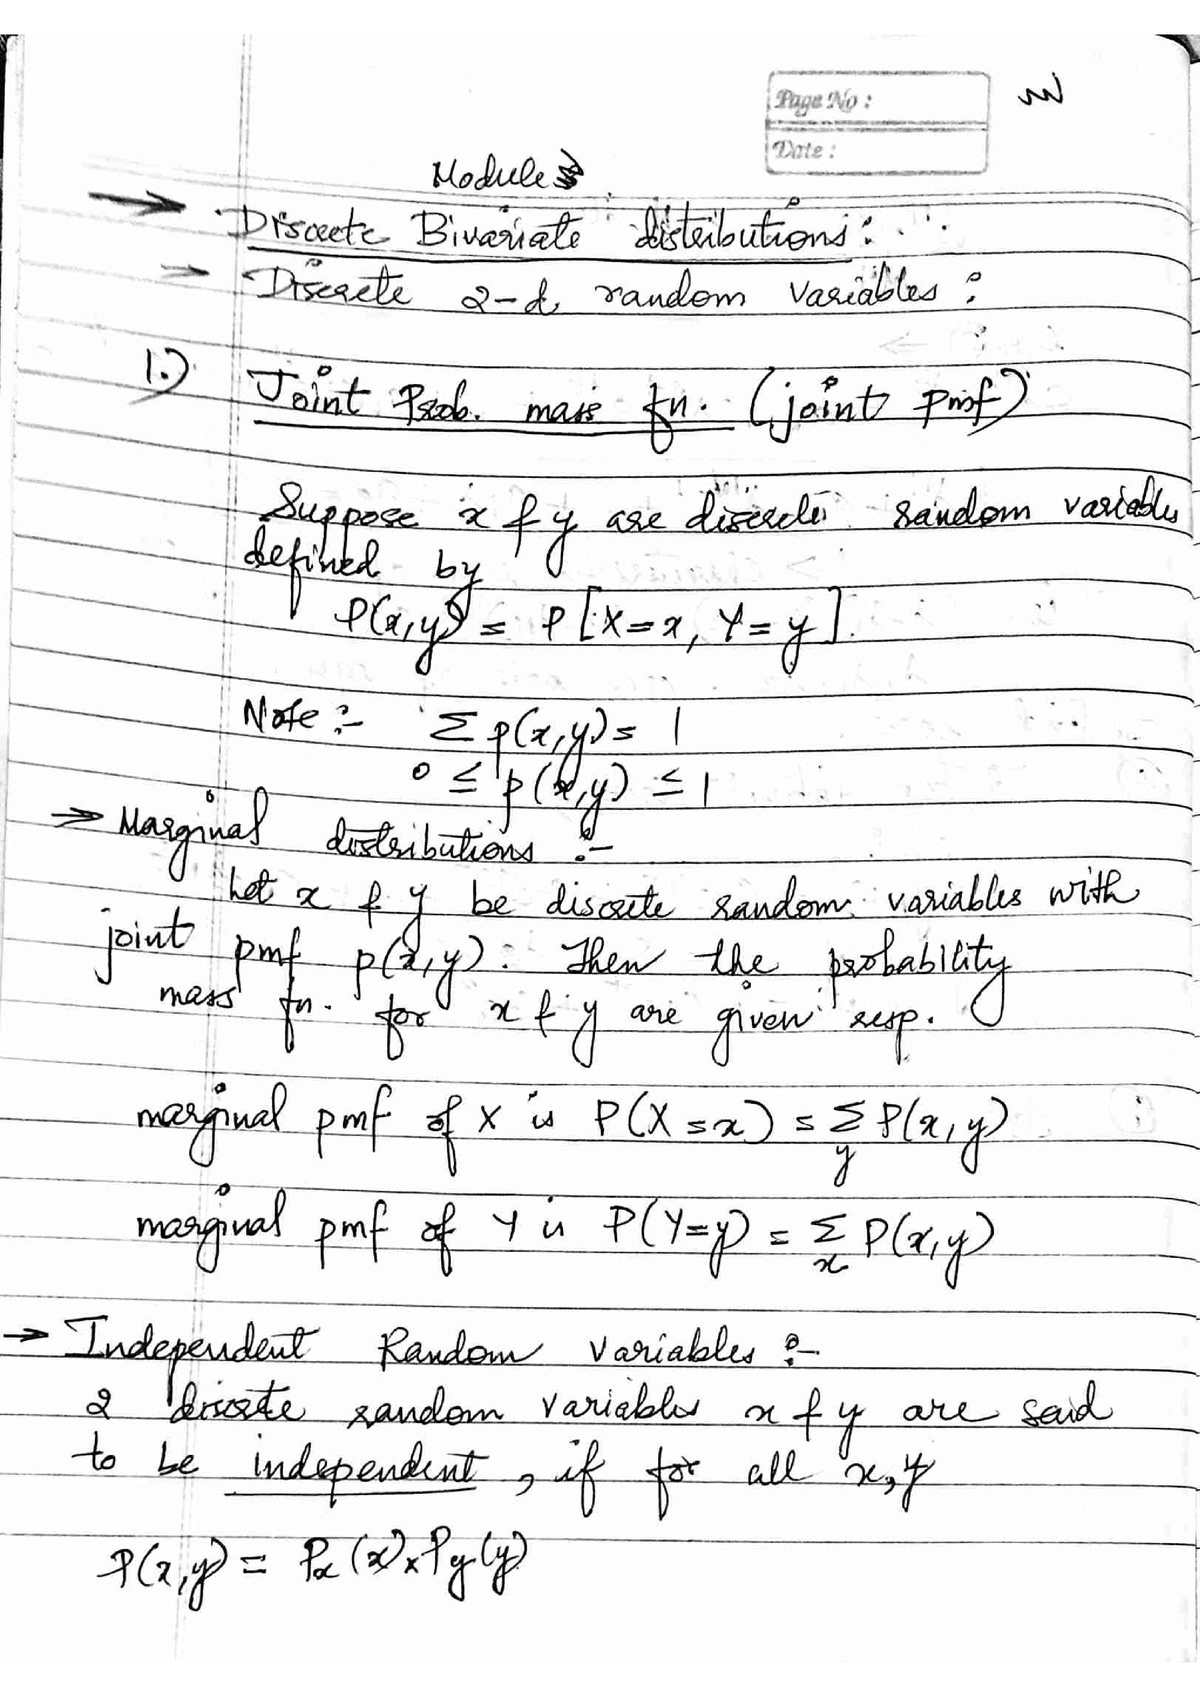 Page No :
Date :
Module 3
→ Discrete Bivariate distributions :
→ Discrete 2-d random variables :
1.) Joint Prob. mass fn. (joint pmf)
Suppose x & y are discrete random variables
defined by
P(x,y) = P[X=x, Y=y].
Note :- Σ p(x,y) = 1
0 ≤ p(x,y) ≤ 1
→ Marginal distributions :-
Let x & y be discrete random variables with
joint pmf p(x,y). Then the probability
mass fn. for x & y are given resp.
marginal pmf of X is P(X=x) = Σ_y P(x,y)
marginal pmf of Y is P(Y=y) = Σ_x P(x,y)
→ Independent Random variables :-
2 discrete random variables x & y are said
to be independent, if for all x,y
P(x,y) = P_x(x) × P_y(y)